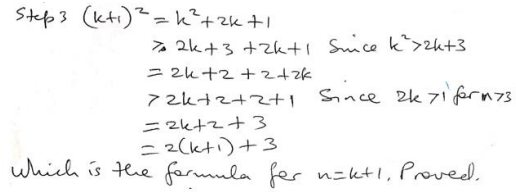 Step 3 (k+1)² = k² + 2k + 1
⩾ 2k + 3 + 2k + 1 Since k² > 2k+3
= 2k + 2 + 2 + 2k
> 2k + 2 + 2 + 1 Since 2k > 1 for n > 3
= 2k + 2 + 3
= 2(k+1) + 3
which is the formula for n = k+1, Proved.